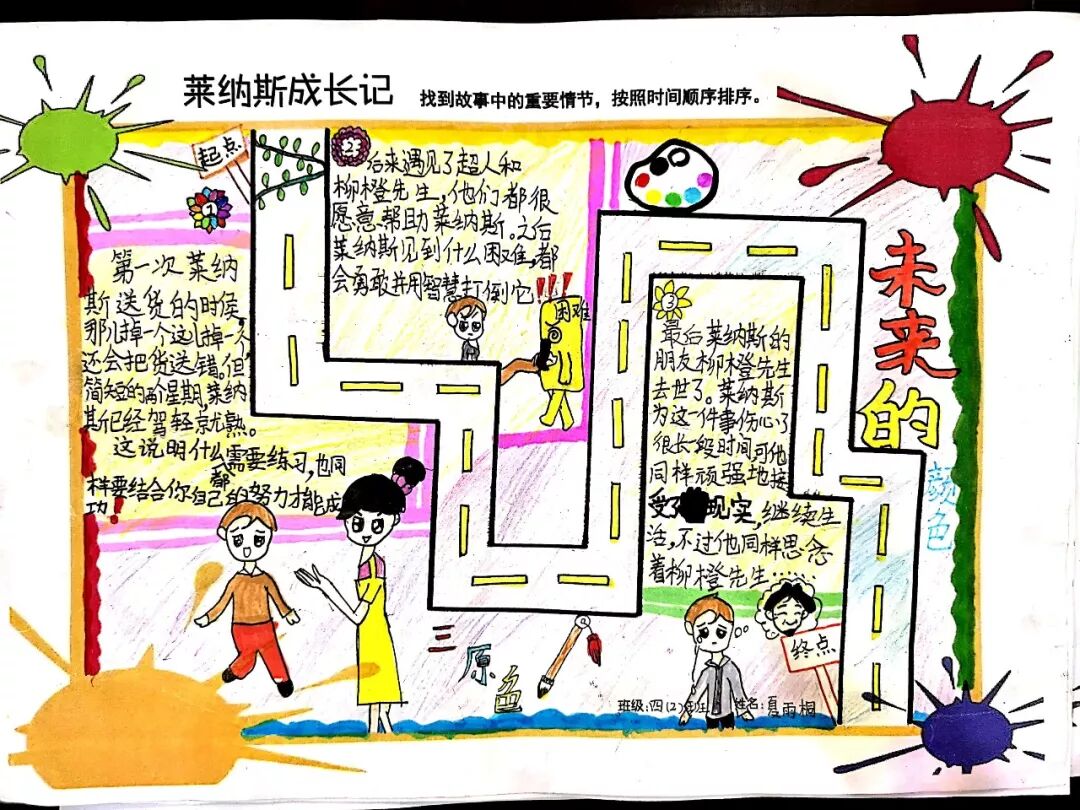 莱纳斯成长记
找到故事中的重要情节，按照时间顺序排序。
起点
1
第一次莱纳
斯送货的时侯，
那儿掉一个这儿掉一个
还会把货送错。但
简短的两个星期，莱纳
斯已经驾轻就熟。
这说明什么都需要练习，也同
样要结合你自己的努力才能成
功！
2
后来遇见了超人和
柳橙先生，他们都很
愿意帮助莱纳斯。之后
莱纳斯见到什么困难，都
会勇敢并用智慧打倒它！！！
困难
3
最后莱纳斯的
朋友柳橙先生
去世了。莱纳斯
为这一件事伤心了
很长一段时间，可他
同样顽强地接
受了现实，继续生
活，不过他同样思念
着柳橙先生……
终点
未来的
颜色
三原色
班级：四(2)班 姓名：夏雨桐